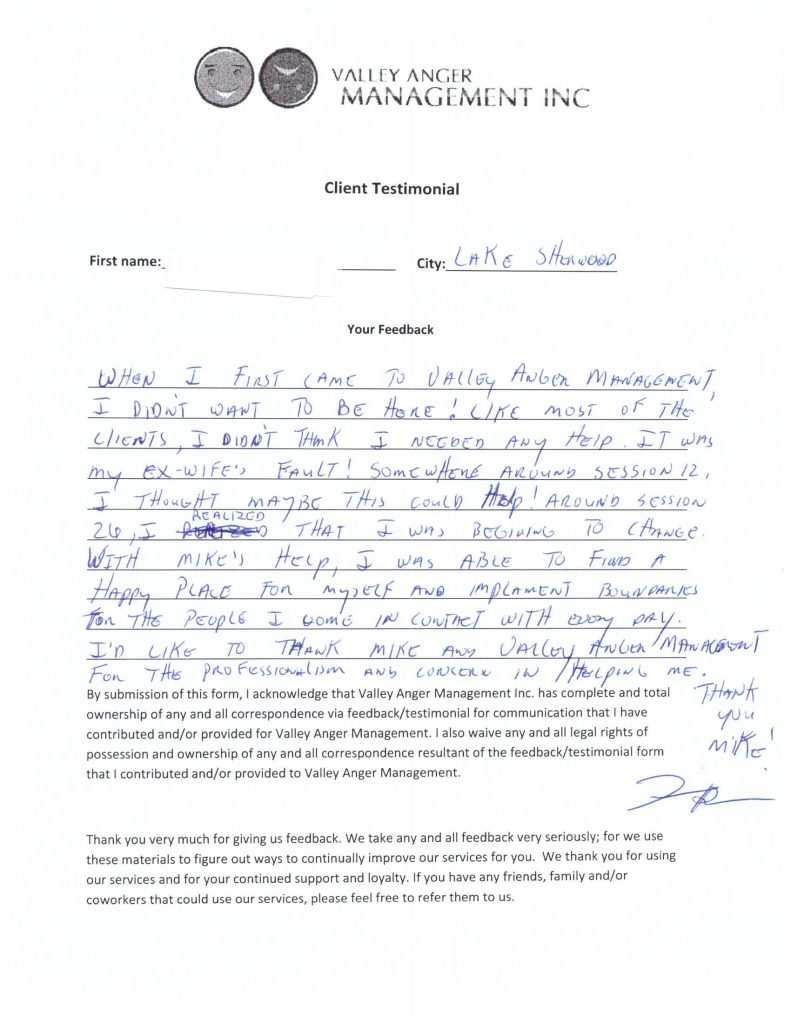 VALLEY ANGER
MANAGEMENT INC
Client Testimonial
First name: City: LAKE SHERWOOD
Your Feedback
WHEN I FIRST CAME TO VALLEY ANGER MANAGEMENT,
I DIDN'T WANT TO BE HERE! LIKE MOST OF THE
CLIENTS, I DIDN'T THINK I NEEDED ANY HELP. IT WAS
MY EX-WIFE'S FAULT! SOMEWHERE AROUND SESSION 12,
I THOUGHT MAYBE THIS COULD HELP! AROUND SESSION
26, I REALIZED THAT I WAS BEGINING TO CHANGE.
WITH MIKE'S HELP, I WAS ABLE TO FIND A
HAPPY PLACE FOR MYSELF AND IMPLAMENT BOUNDARIES
FOR THE PEOPLE I COME IN CONTACT WITH EVERY DAY.
I'D LIKE TO THANK MIKE AND VALLEY ANGER MANAGEMENT
FOR THE PROFESSIONALISM AND CONCERN IN HELPING ME.
THANK
YOU
MIKE!
By submission of this form, I acknowledge that Valley Anger Management Inc. has complete and total
ownership of any and all correspondence via feedback/testimonial for communication that I have
contributed and/or provided for Valley Anger Management. I also waive any and all legal rights of
possession and ownership of any and all correspondence resultant of the feedback/testimonial form
that I contributed and/or provided to Valley Anger Management.
Thank you very much for giving us feedback. We take any and all feedback very seriously; for we use
these materials to figure out ways to continually improve our services for you. We thank you for using
our services and for your continued support and loyalty. If you have any friends, family and/or
coworkers that could use our services, please feel free to refer them to us.